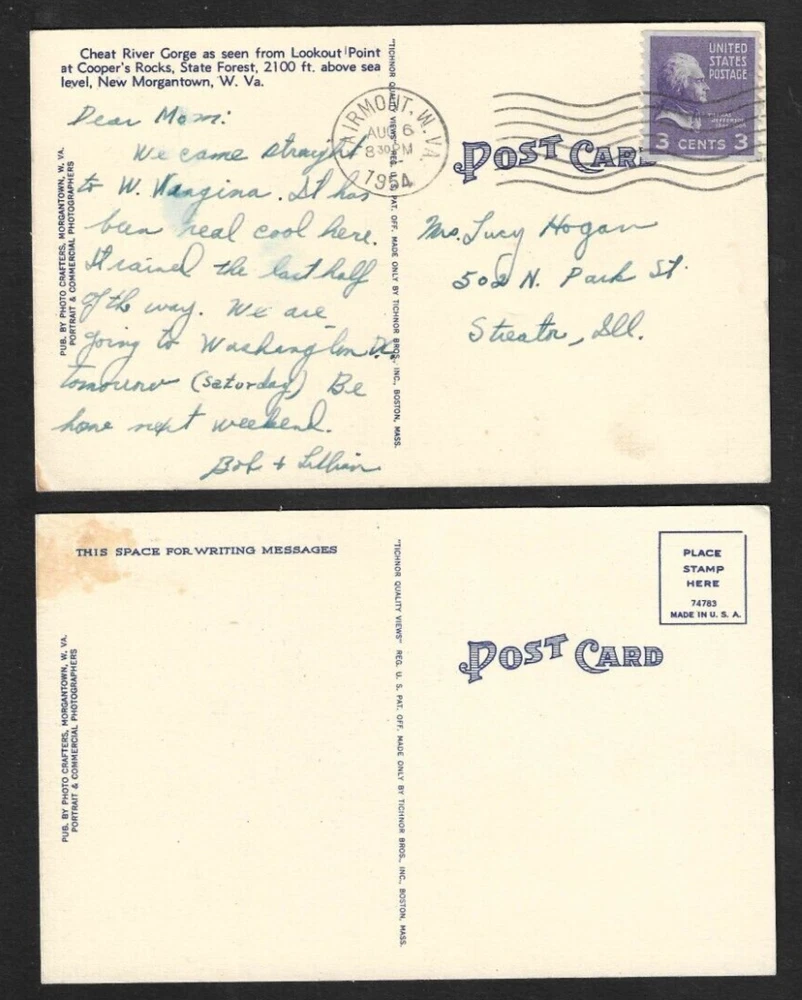 Cheat River Gorge as seen from Lookout Point
at Cooper's Rocks, State Forest, 2100 ft. above sea
level, New Morgantown, W. Va.
Dear Mom:
We came straight
to W. Vangina. It has
been real cool here.
It rained the last half
of the way. We are
going to Washington D.C.
tomorrow (Saturday) Be
home next weekend.
Bob + Lillian
PUB. BY PHOTO CRAFTERS, MORGANTOWN, W. VA.
PORTRAIT & COMMERCIAL PHOTOGRAPHERS
"TICHNOR QUALITY VIEWS" REG. U. S. PAT. OFF. MADE ONLY BY TICHNOR BROS., INC., BOSTON, MASS.
FAIRMONT, W. VA.
AUG 6
8 30 PM
1954
UNITED
STATES
POSTAGE
3 CENTS 3
POST CARD
Mrs. Lucy Hogan
502 N. Park St.
Streator, Ill.
THIS SPACE FOR WRITING MESSAGES
PUB. BY PHOTO CRAFTERS, MORGANTOWN, W. VA.
PORTRAIT & COMMERCIAL PHOTOGRAPHERS
"TICHNOR QUALITY VIEWS" REG. U. S. PAT. OFF. MADE ONLY BY TICHNOR BROS., INC., BOSTON, MASS.
PLACE
STAMP
HERE
74783
MADE IN U. S. A.
POST CARD